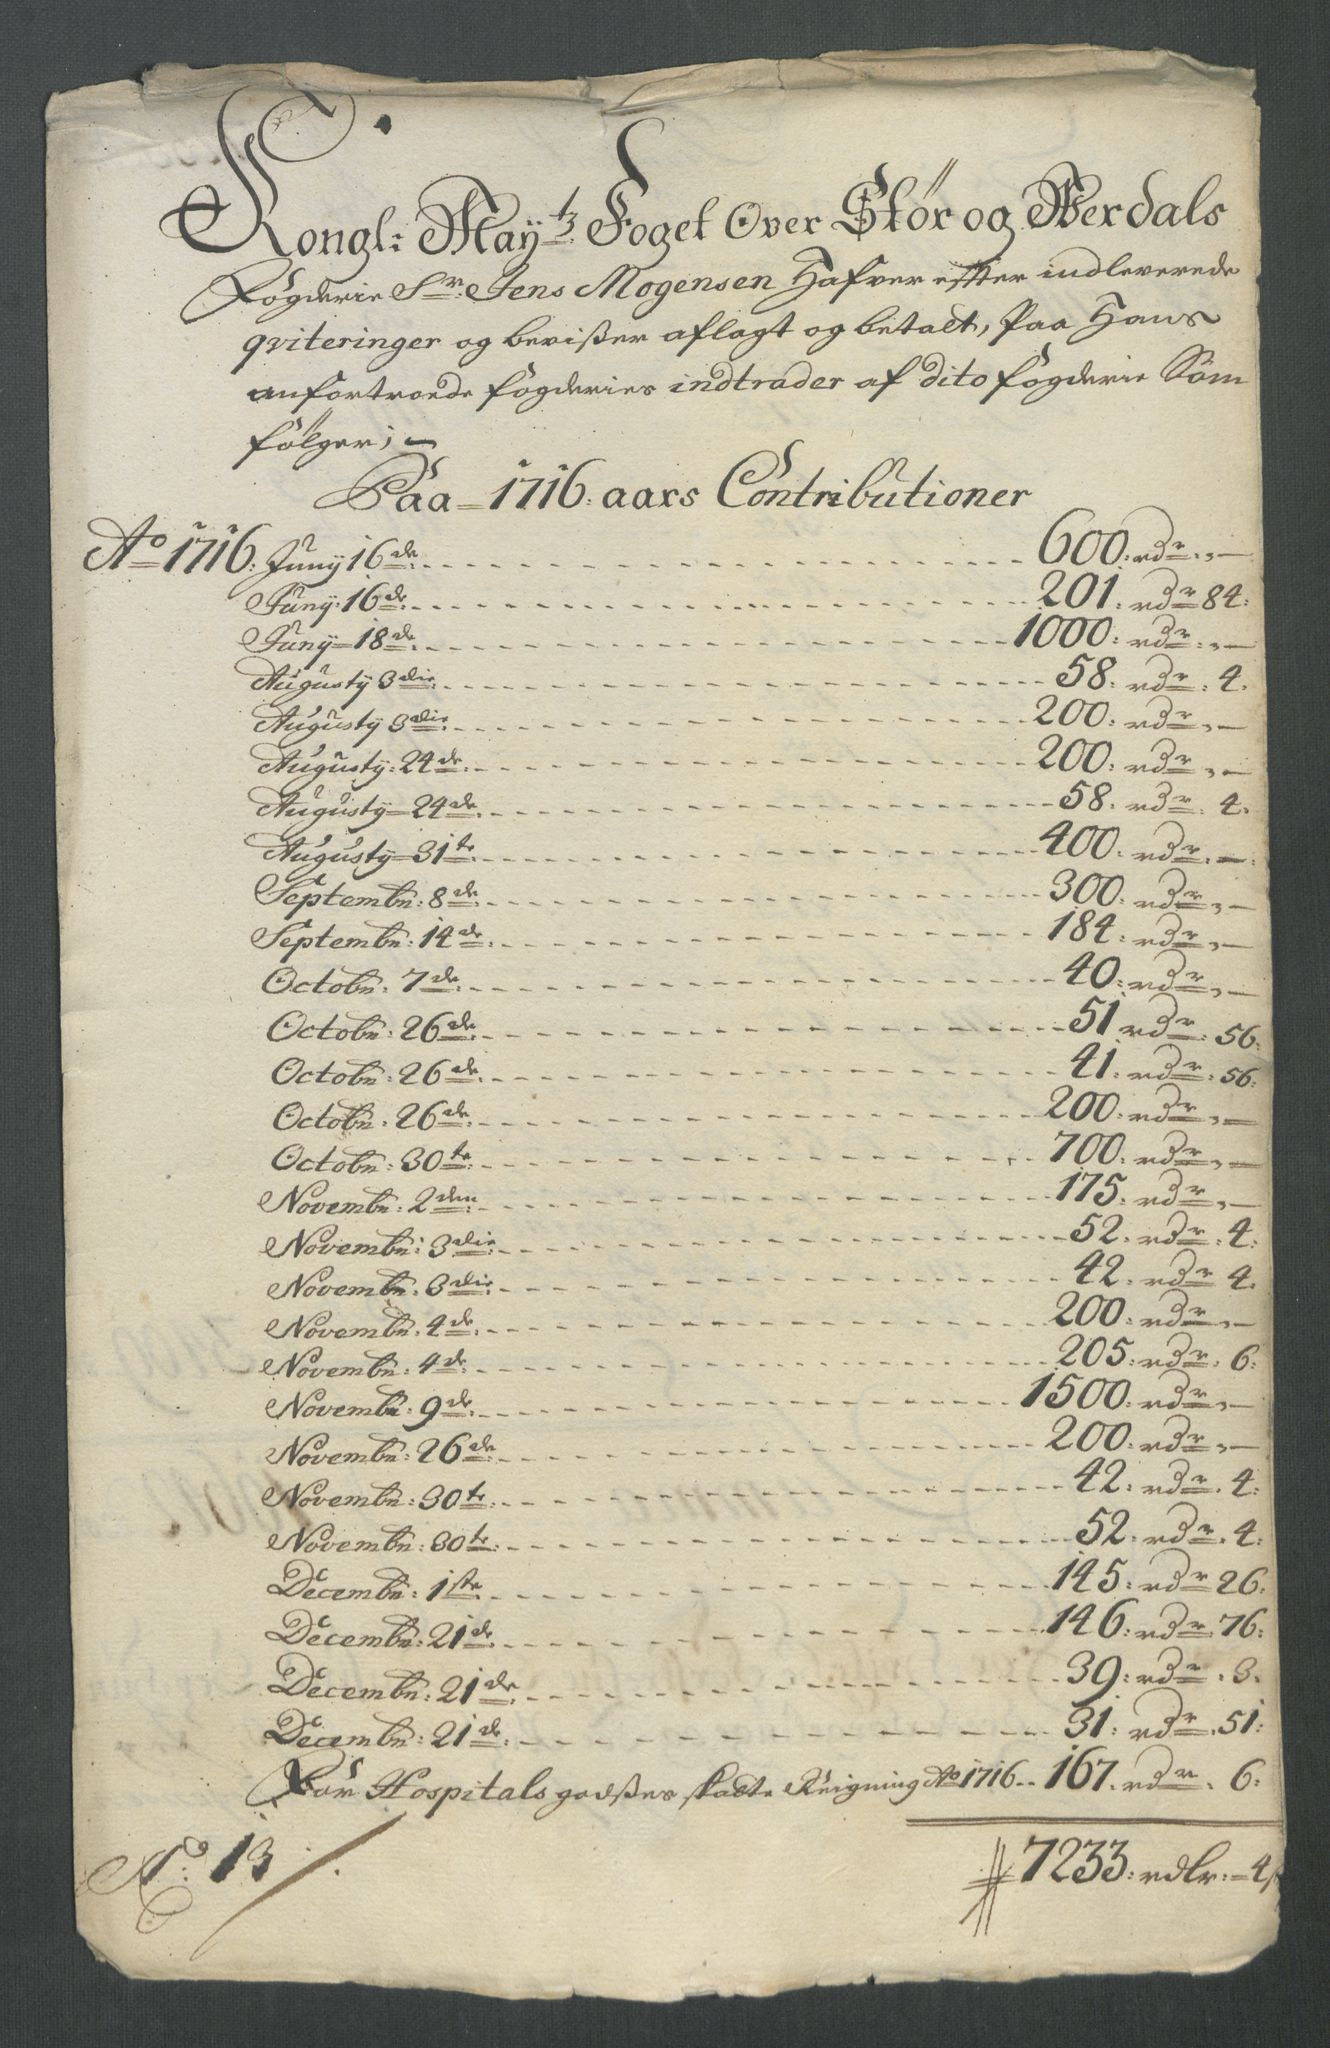 Kongl: May:tz Foget Over Stør og Werdals
Fögderie Sr: Jens Mogensen Hafver efter indleverede
qviteringer og bevißer aflagt og betalt, Paa Hans
anfortroede fögderies indtrader af dito fögderie Söm
fölger; —
Paa 1716. aars Contributioner
Ao 1716. Juny 16de. 600. rdr. —
Juny. 16de. 201. rdr 84.
Juny 18de. 1000. rdr. —
Augusty 3die. 58. rdr. 4.
Augusty 3die. 200. rdr —
Augusty. 24de. 200. rdr —
Augusty 24de. 58. rdr. 4.
Augusty 31te. 400. rdr. —
Septembr: 8de. 300. rdr —
Septembr: 14de. 184. rdr —
Octobr: 7de. 40. rdr —
Octobr: 26de. 51 rdr. 56.
Octobr: 26de. 41. rdr. 56.
Octobr: 26de. 200. rdr —
Octobr: 30te. 700. rdr —
Novembr: 2den. 175. rdr —
Novembr: 3die. 52. rdr. 4.
Novembr: 3die. 42. rdr 4.
Novembr: 4de. 200. rdr —
Novembr: 4de. 205. rdr. 6.
Novembr: 9de. 1500. rdr —
Novembr: 26de. 200. rdr —
Novembr: 30te. 42. rdr. 4.
Novembr: 30te. 52. rdr. 4.
Decembr: 1ste 145. rdr 26.
Decembr: 21de. 146. rdr. 76.
Decembr: 21de. 39. rdr. 3.
Decembr: 21de. 31. rdr. 51.
For Hospitals godßes skatte Reigning Ao 1716.. 167. rdr. 6.
No: 13
7233. rdlr. 4